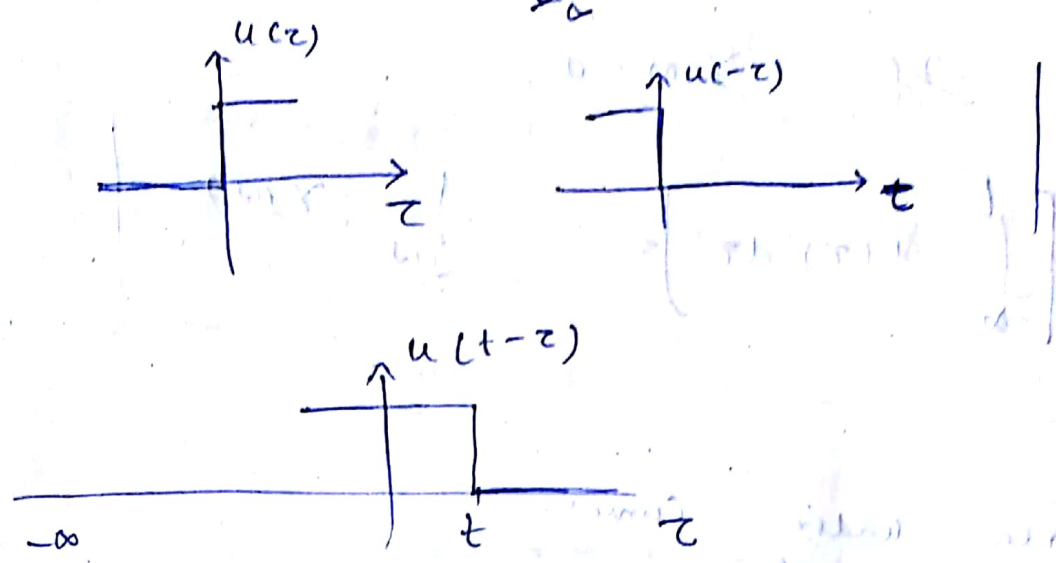 ∞
u(τ)
u(-τ)
τ
t
u(t-τ)
-∞
t
τ